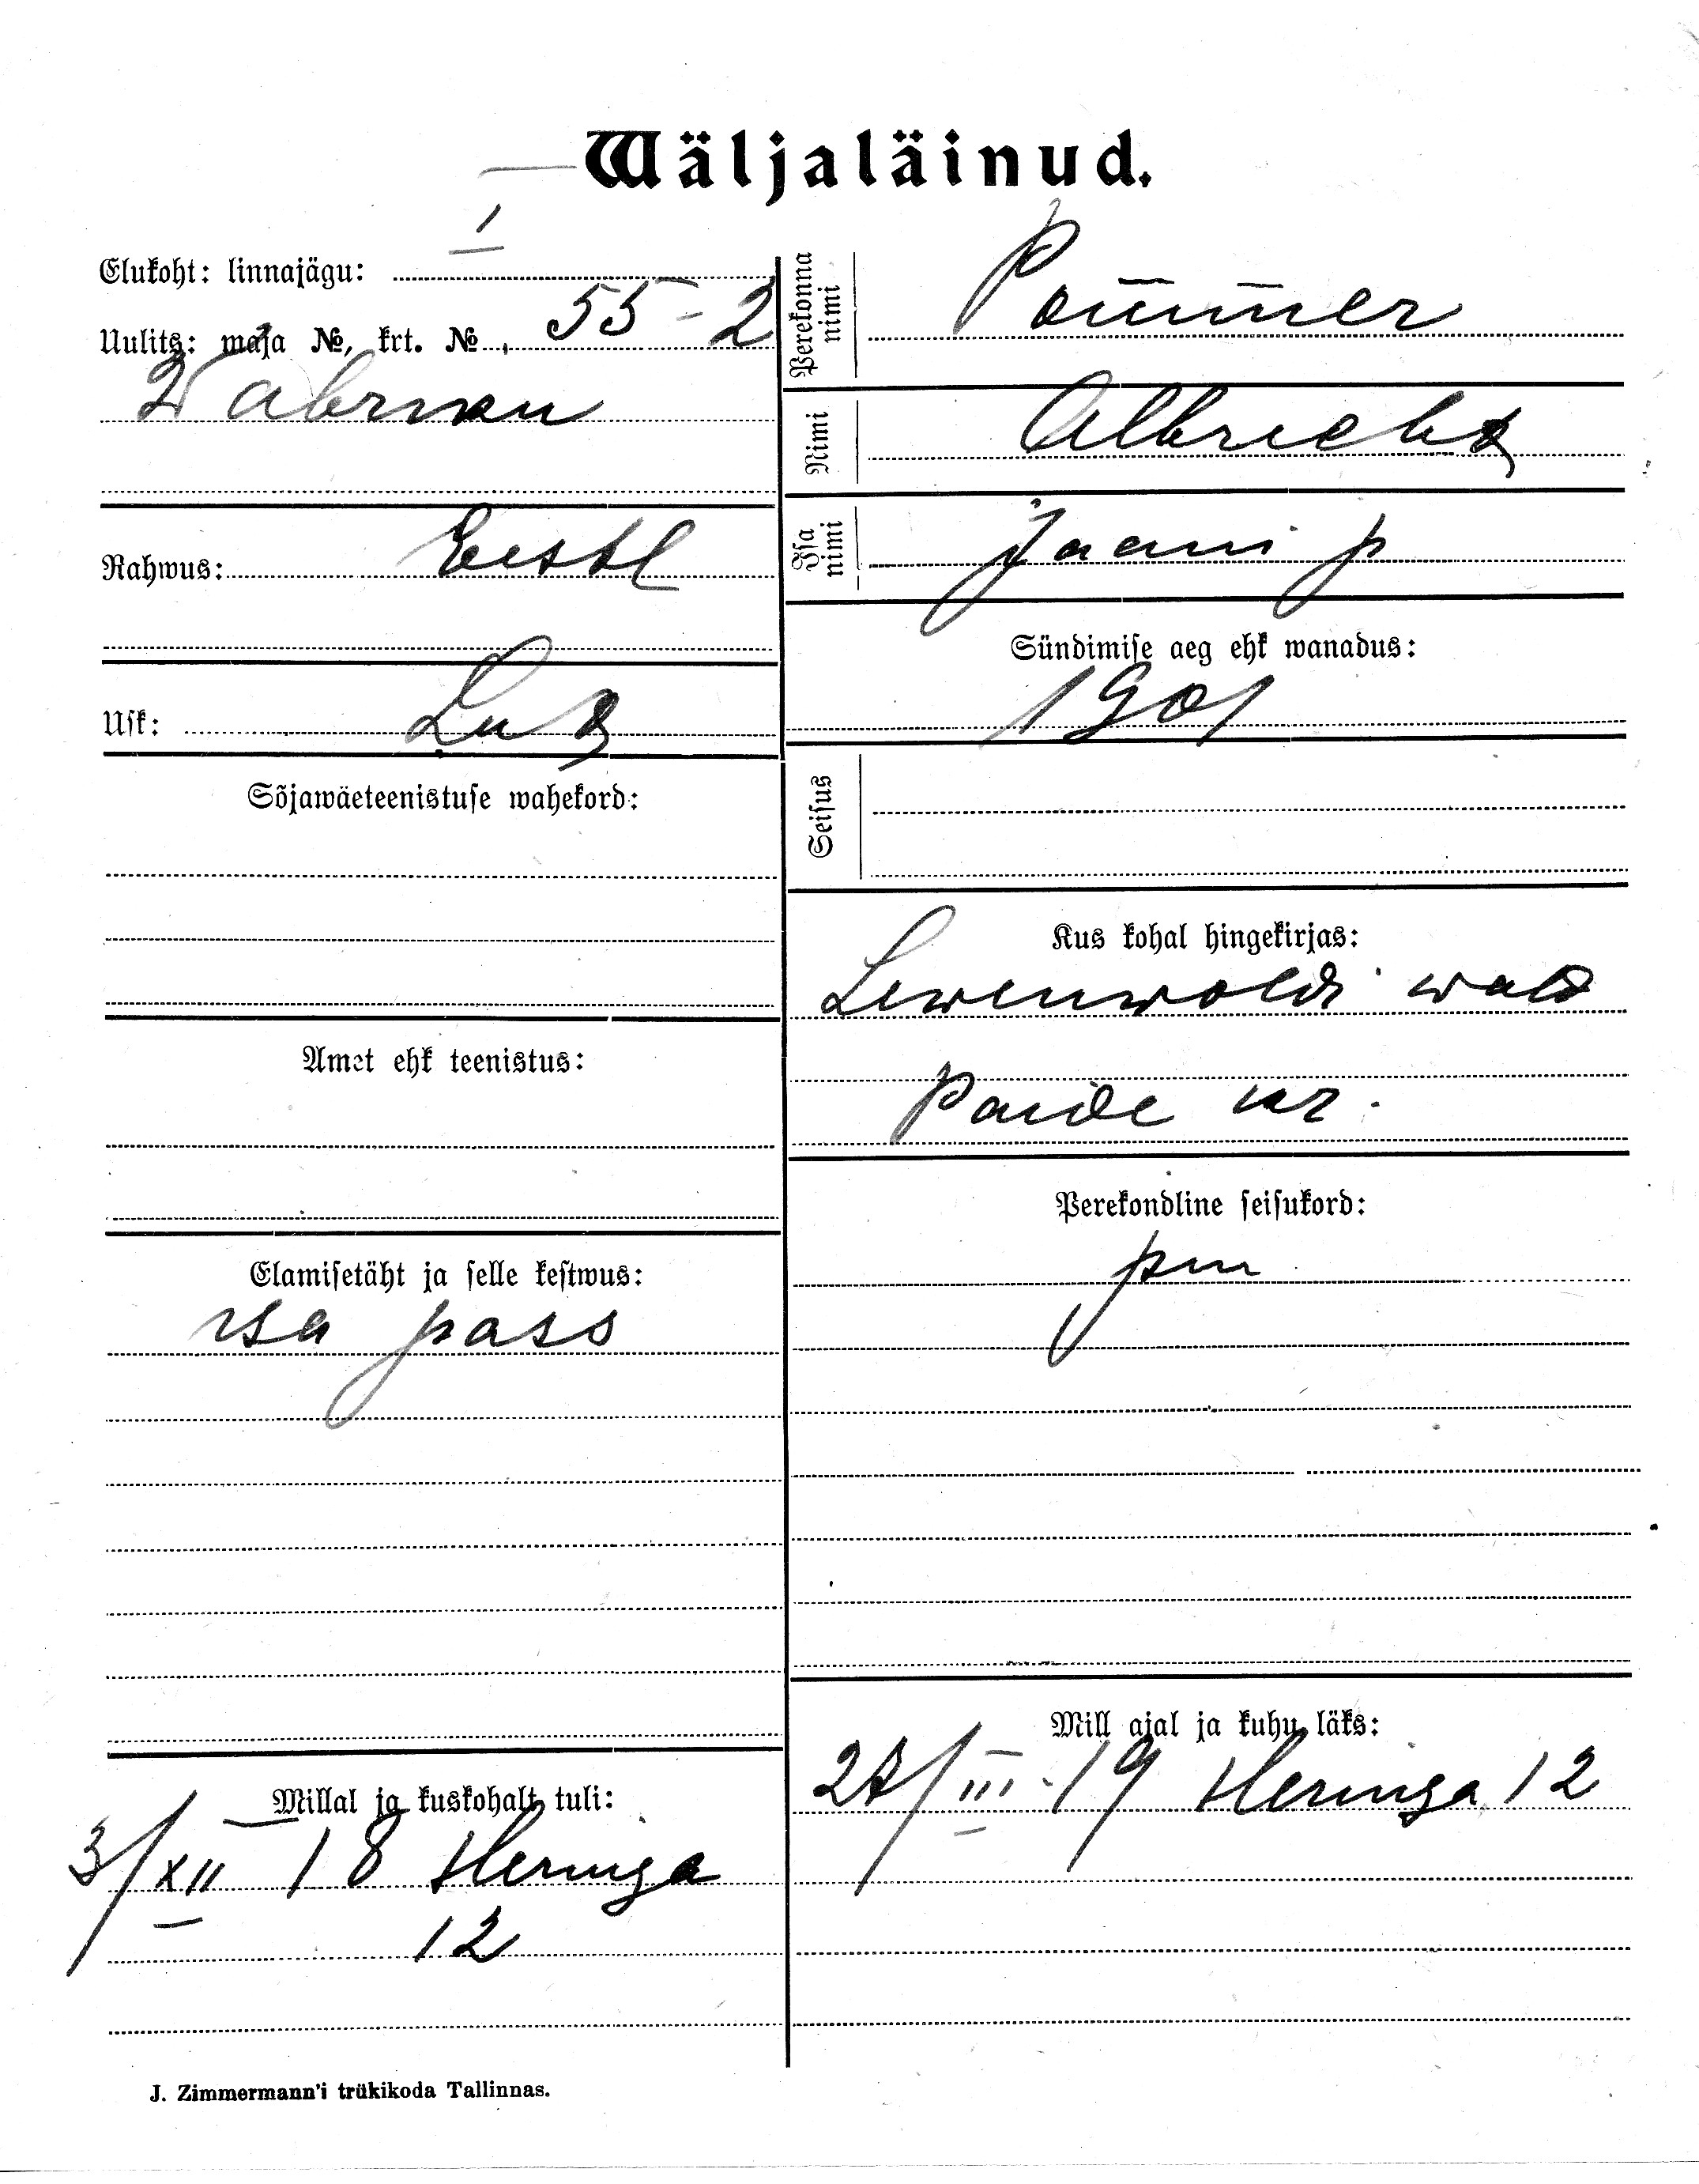 Wäljaläinud.
Elukoht: linnajägu: I
Uulits: maja №, krt. № 55-2
Wabriku
Rahwus: Eestl
Usk: Lut
Sõjawäeteenistuse wahekord:
Amet ehk teenistus:
Elamisetäht ja selle kestwus:
isa pass
Millal ja kuskohalt tuli:
3/XII 18 Heringa
12
Perekonna nimi Pom̄er
Nimi Albrecht
Isa nimi Jaani p
Sündimise aeg ehk wanadus:
1901
Seisus
Kus kohal hingekirjas:
Lewenwoldi wald
Paide kr.
Perekondline seisukord:
pm
Mill ajal ja kuhu läks:
27/III-19 Heringa 12
J. Zimmermann'i trükikoda Tallinnas.